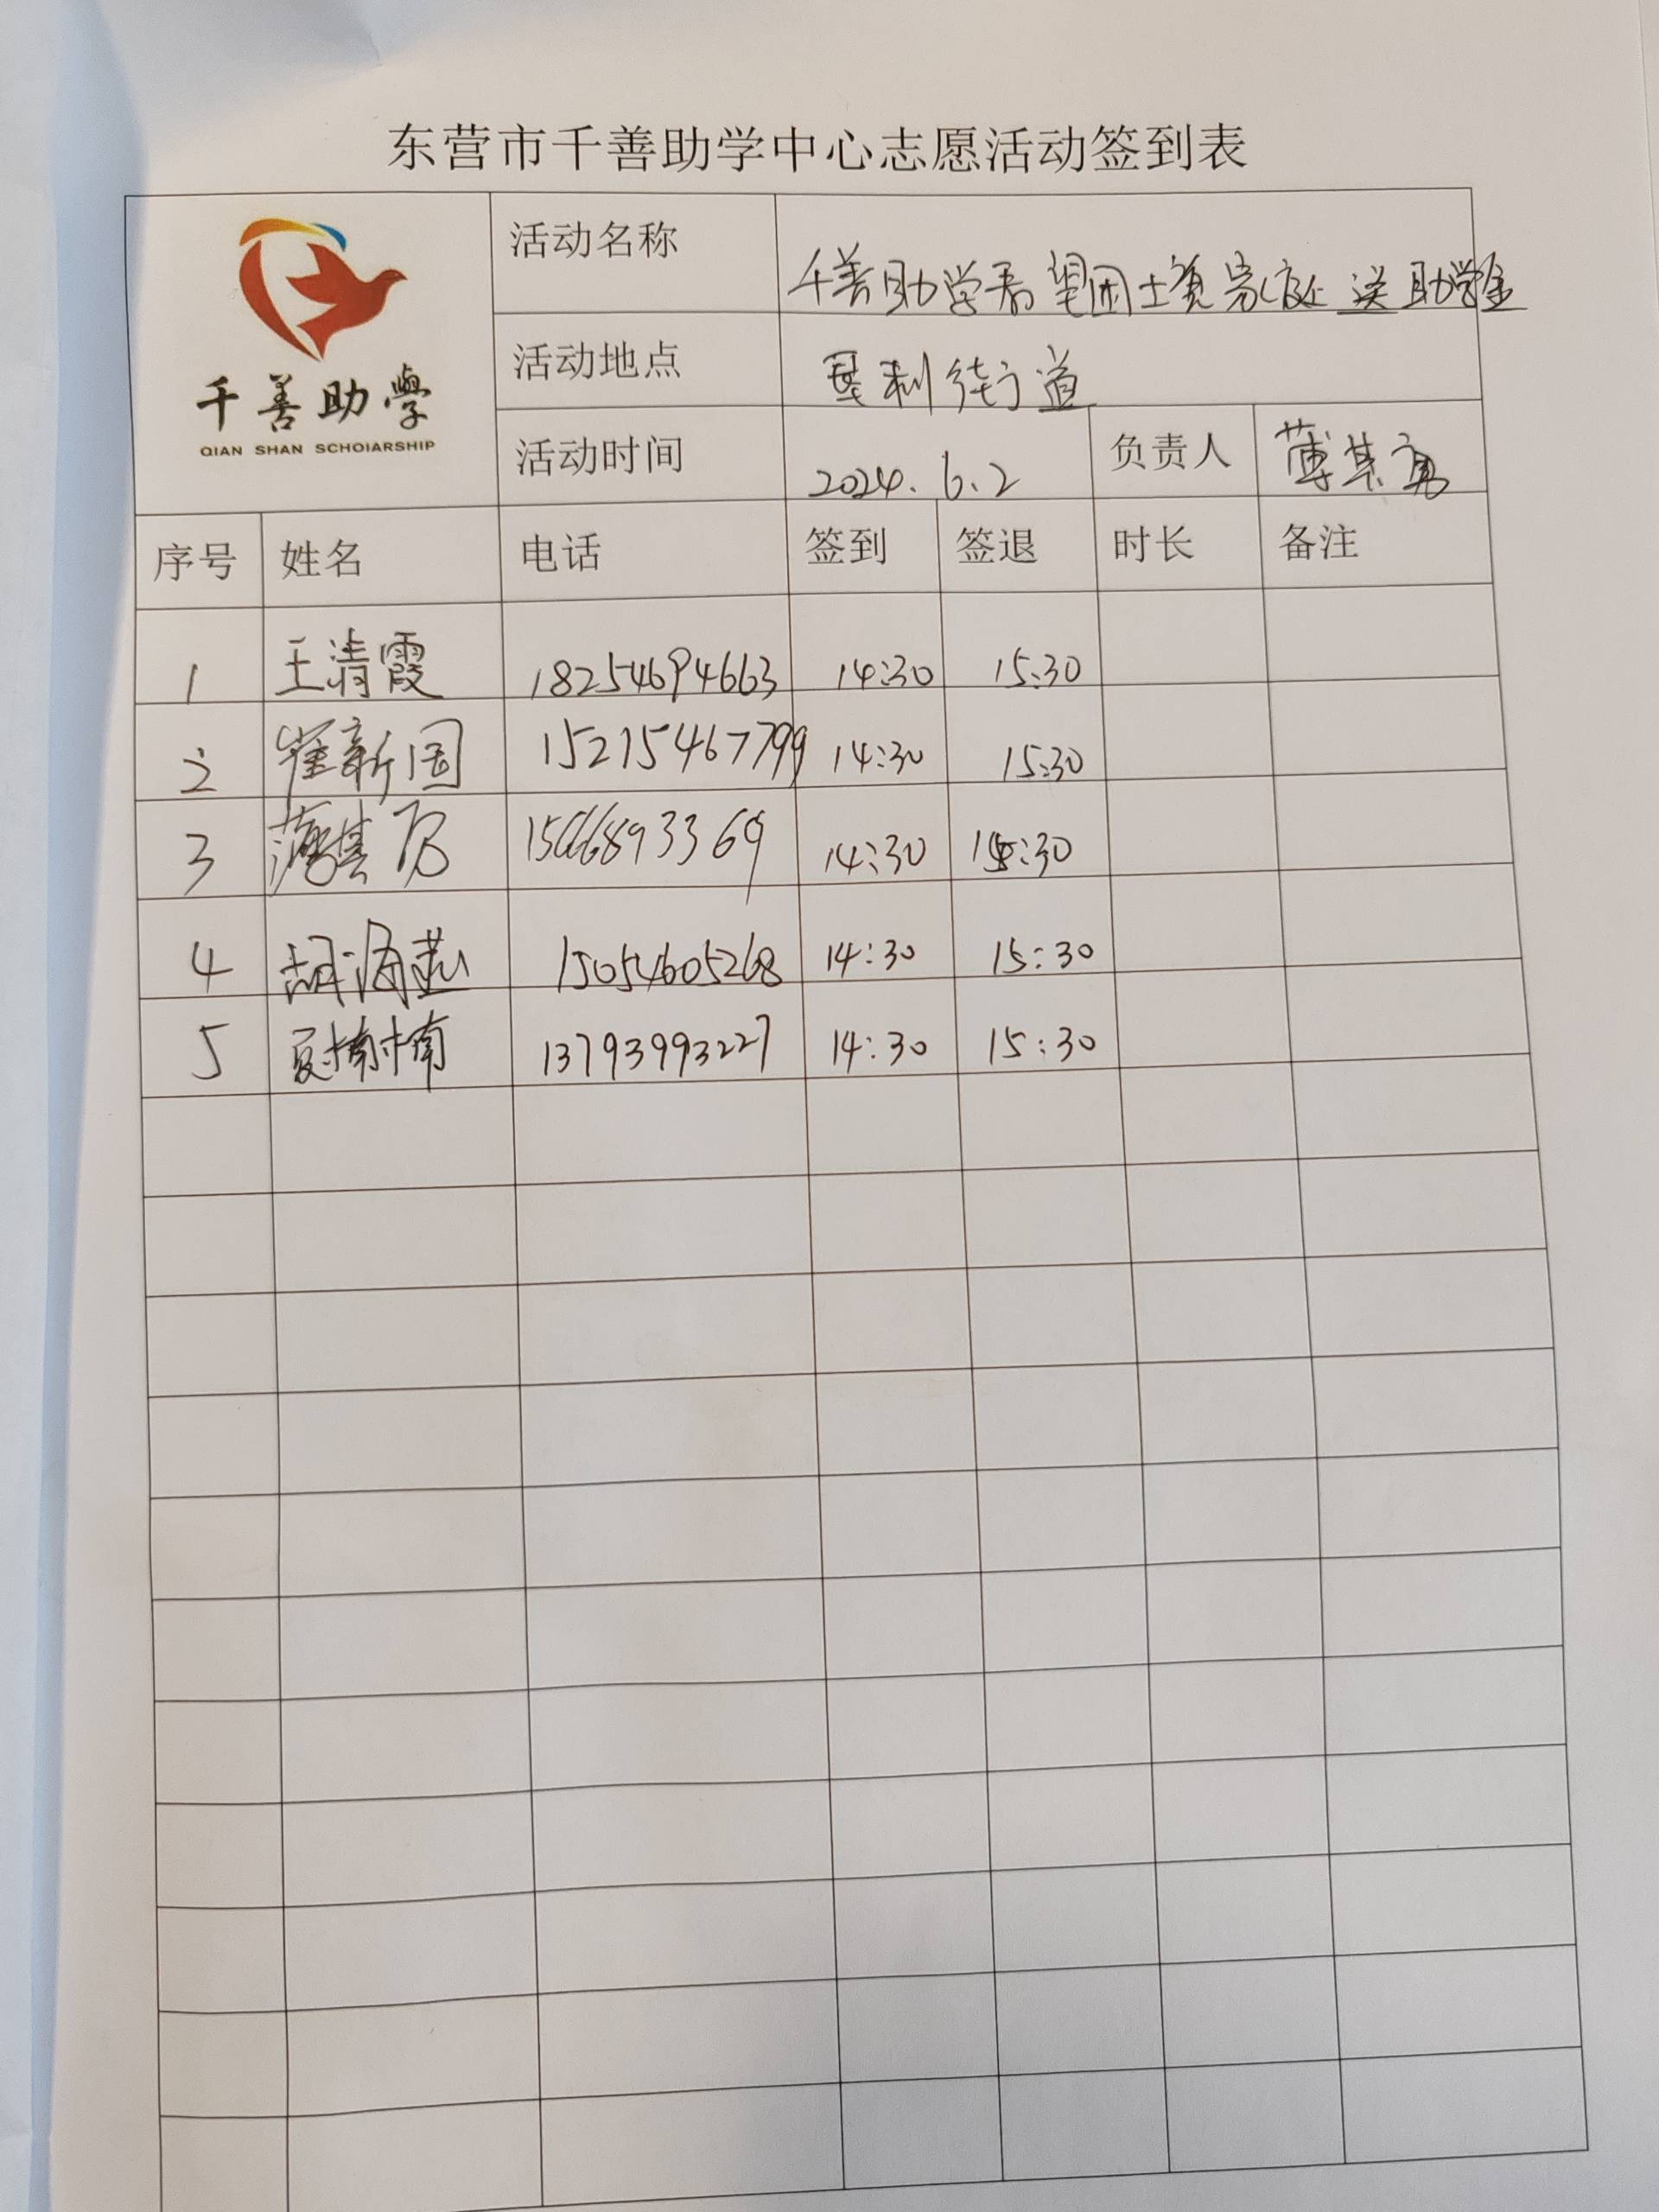 东营市千善助学中心志愿活动签到表
千善助學
QIAN SHAN SCHOIARSHIP
活动名称 千善助学看望困士竟家庭 送助学金
活动地点 垦利街道
活动时间 2024.6.2 负责人 薄其
序号 姓名 电话 签到 签退 时长 备注
1 王清霞 18254694663 14:30 15:30
2 崔新国 15215467799 14:30 15:30
3 薄其 14:30 15:30
4 胡海燕 15054605268 14:30 15:30
5 13793993227 14:30 15:30